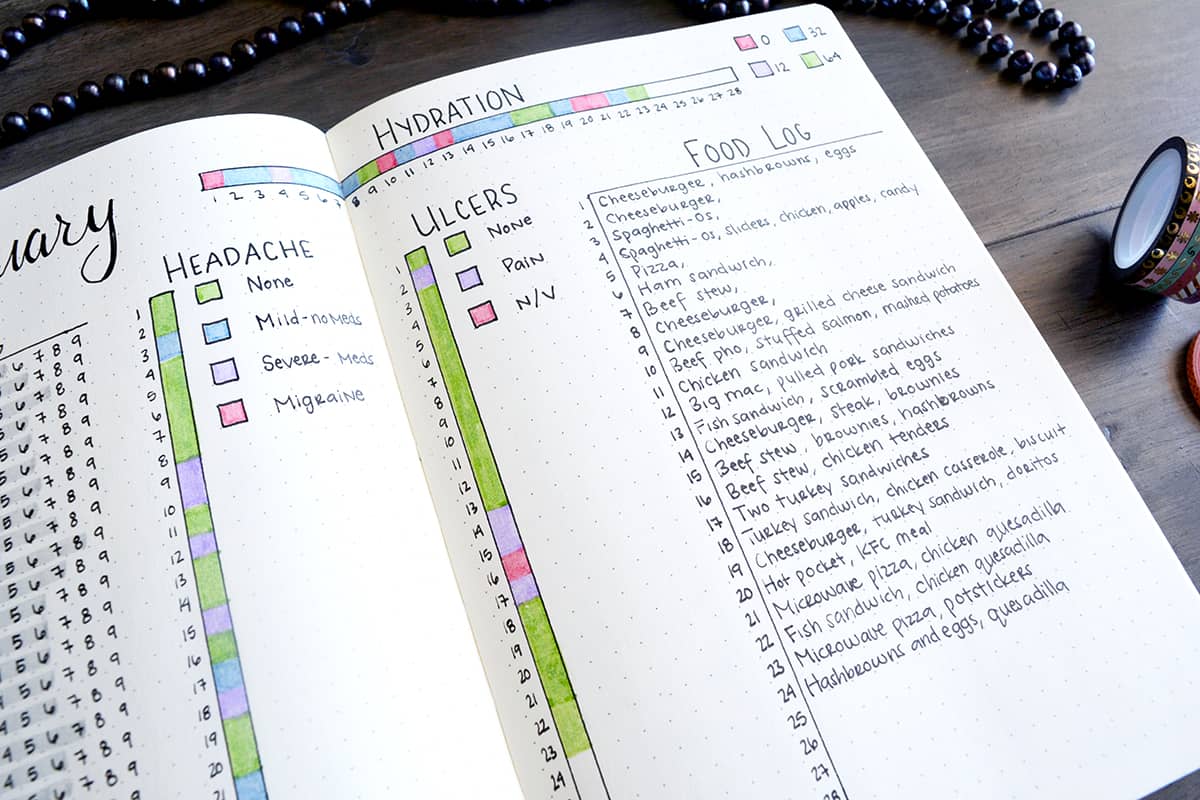 uary
HEADACHE
None
Mild-no Meds
Severe-Meds
Migraine
1
2
3
4
5
6
7
8
9
10
11
12
13
14
15
16
17
18
19
20
21
6 7 8 9
6 7 8 9
6 7 8 9
5 6 7 8 9
5 6 7 8 9
5 6 7 8 9
5 6 7 8 9
5 6 7 8 9
5 6 7 8 9
5 6 7 8 9
5 6 7 8 9
4 5 6 7 8 9
4 5 6 7 8 9
HYDRATION
0 32
12 64
1 2 3 4 5 6 7 8 9 10 11 12 13 14 15 16 17 18 19 20 21 22 23 24 25 26 27 28
ULCERS
None
Pain
N/V
1
2
3
4
5
6
7
8
9
10
11
12
13
14
15
16
17
18
19
20
21
22
23
24
FOOD LOG
1 Cheeseburger, hashbrowns, eggs
2 Cheeseburger,
3 Spaghetti-Os,
4 Spaghetti-Os, sliders, chicken, apples, candy
5 Pizza,
6 Ham sandwich,
7 Beef stew,
8 Cheeseburger,
9 Cheeseburger, grilled cheese sandwich
10 Beef pho, stuffed salmon, mashed potatoes
11 Chicken sandwich
12 Big mac, pulled pork sandwiches
13 Fish sandwich, scrambled eggs
14 Cheeseburger, steak, brownies
15 Beef stew, brownies, hashbrowns
16 Beef stew, chicken tenders
17 Two turkey sandwiches
18 Turkey sandwich, chicken casserole, biscuit
19 Cheeseburger, turkey sandwich, doritos
20 Hot pocket, KFC meal
21 Microwave pizza, chicken quesadilla
22 Fish sandwich, chicken quesadilla
23 Microwave pizza, potstickers
24 Hashbrowns and eggs, quesadilla
25
26
27
28